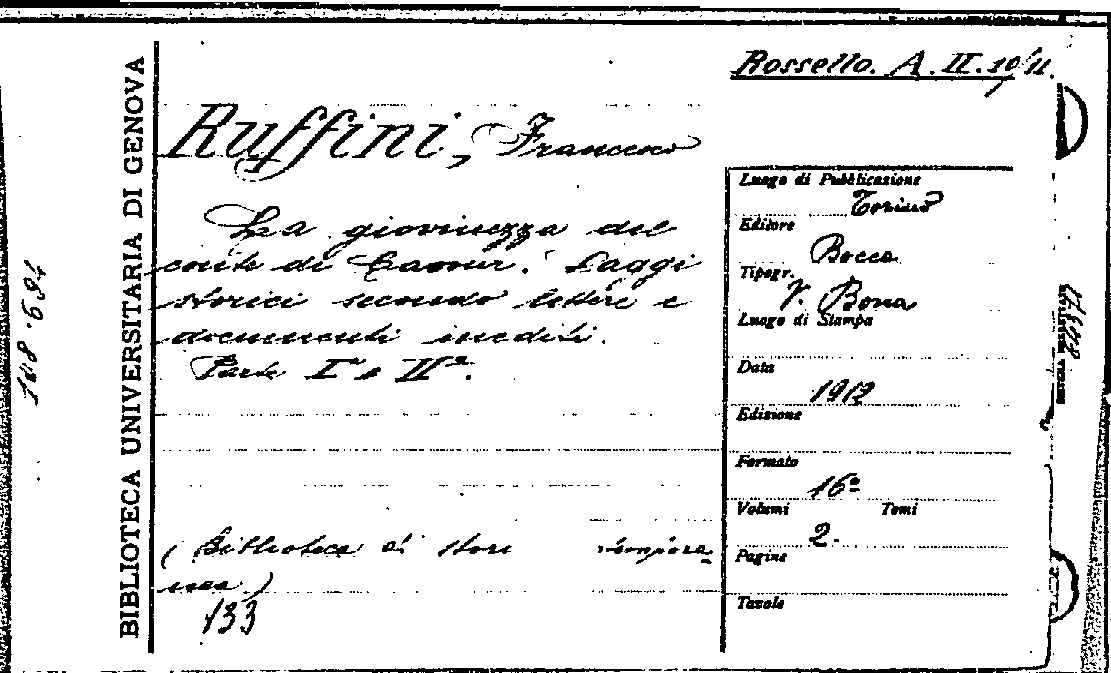 Rossello. A. II. 10/11.
Ruffini, Francesco
La giovinezza del
conte di Cavour. Saggi
storici secondo lettere e
documenti inediti.
Parte Iª e IIª.
(Biblioteca di
)
133
BIBLIOTECA UNIVERSITARIA DI GENOVA
Luogo di Pubblicazione
Torino
Editore
Bocca
Tipogr.
V. Bona
Luogo di Stampa
Data
1912
Edizione
Formato
16º
Volumi Tomi
2.
Pagine
Tavole